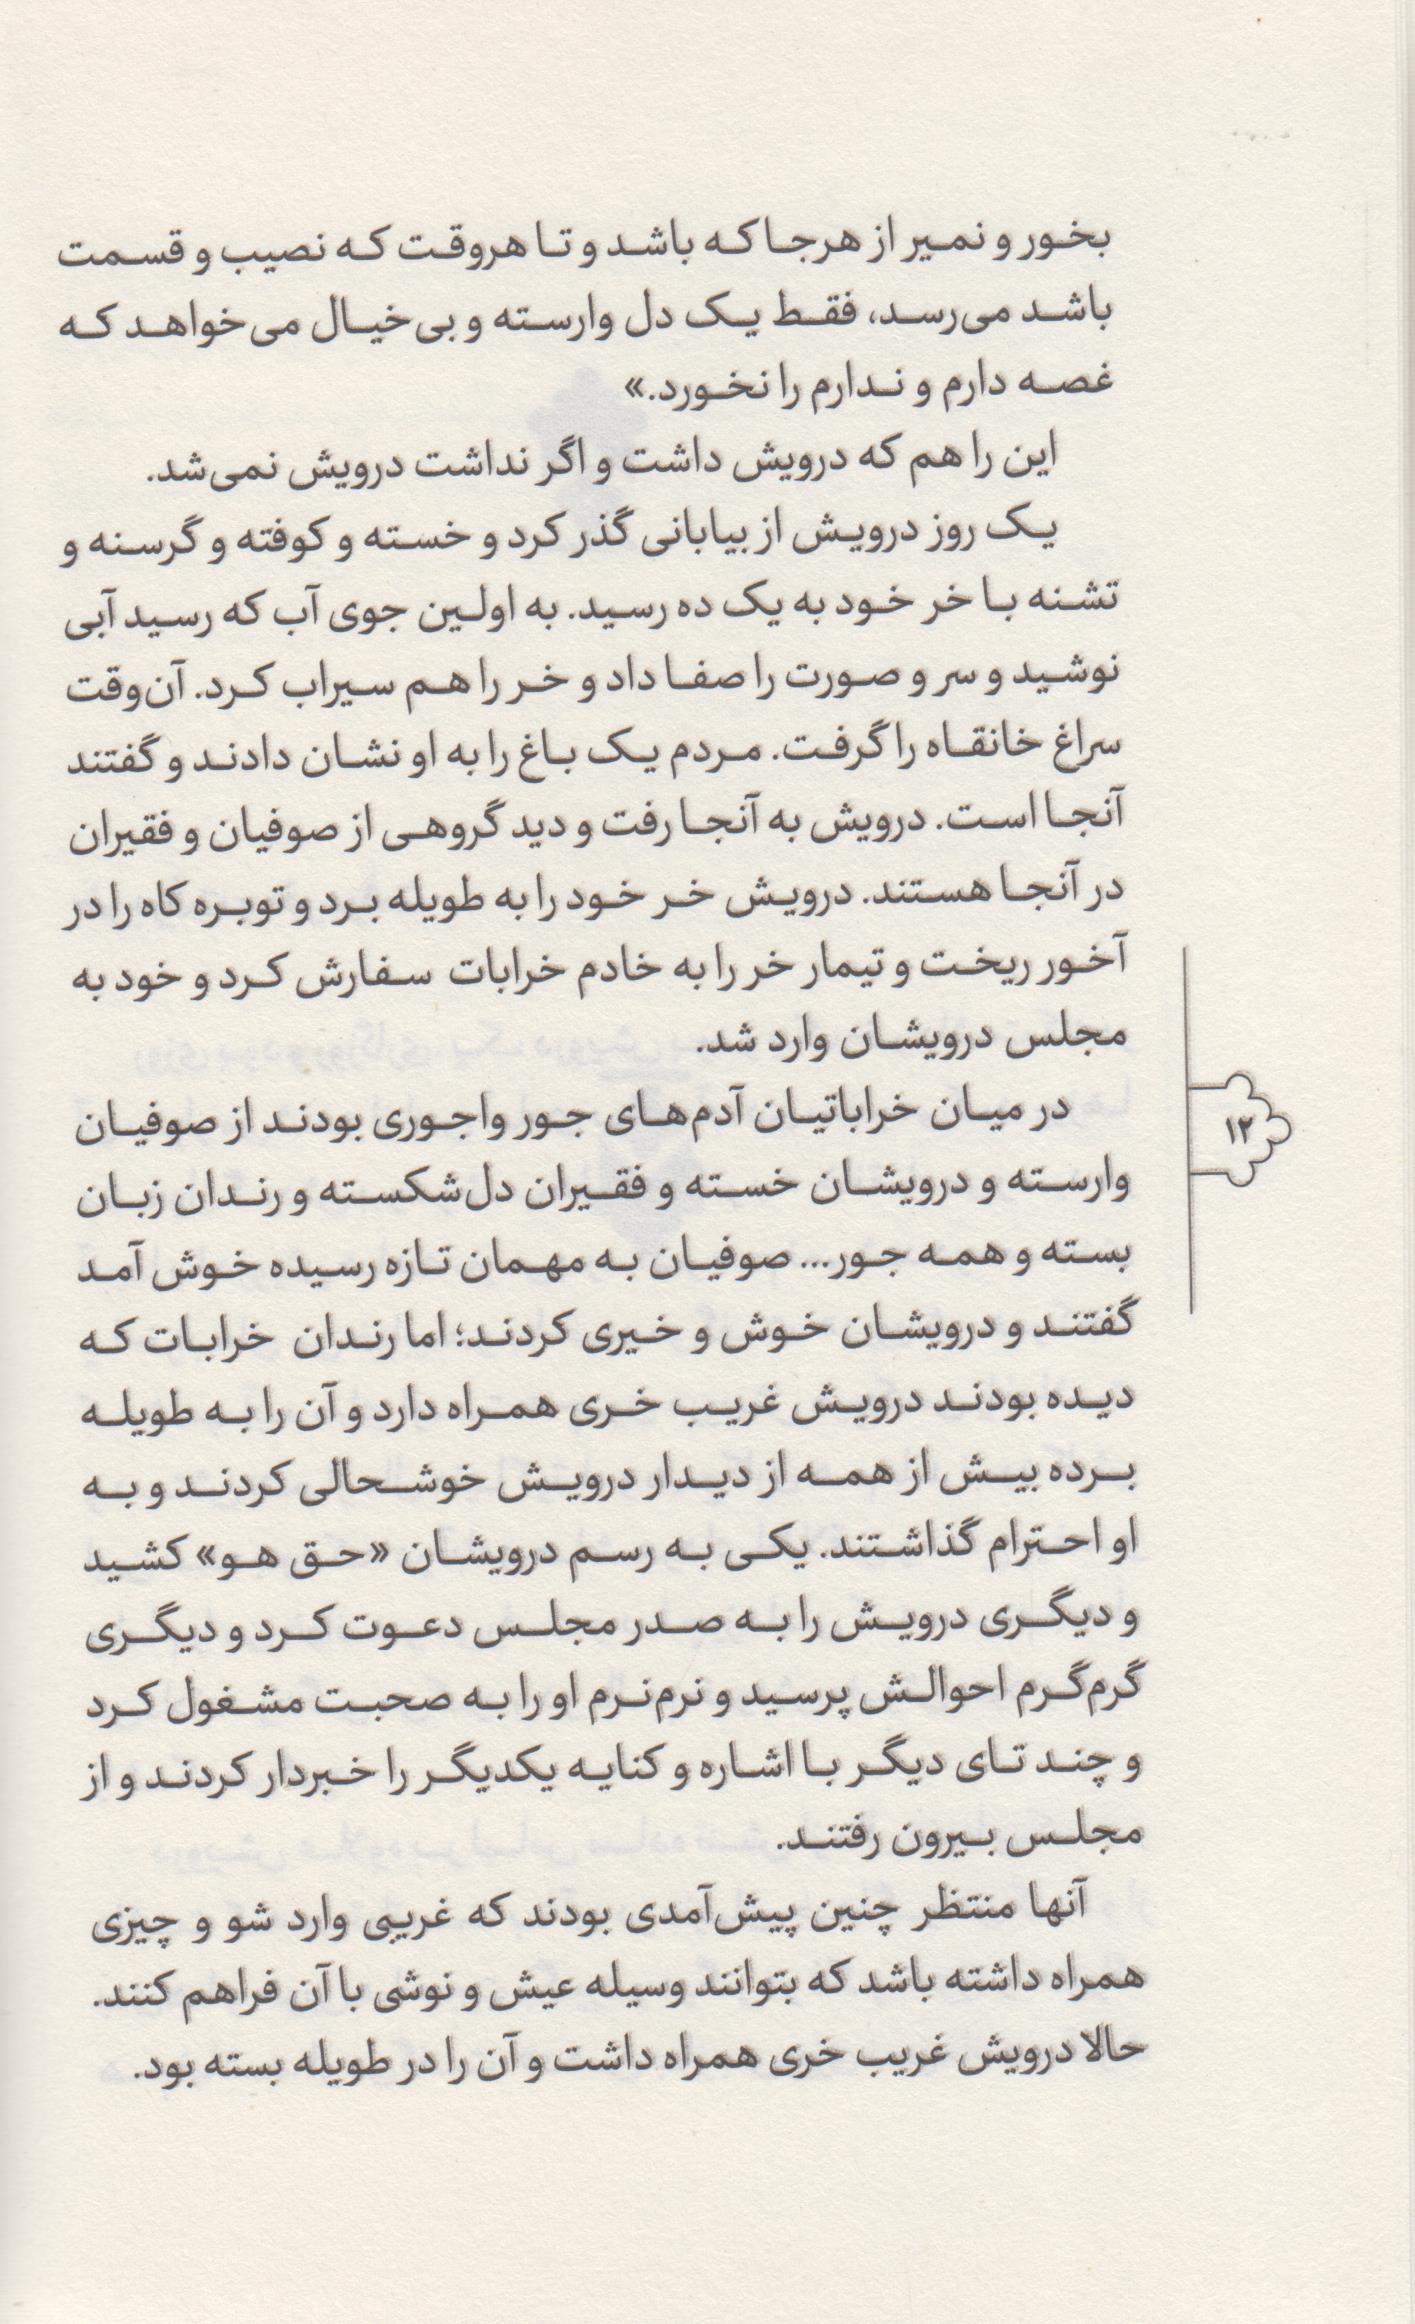 بخور و نمیر از هرجا که باشد و تا هروقت که نصیب و قسمت
باشد می‌رسد، فقط یک دل وارسته و بی‌خیال می‌خواهد که
غصه دارم و ندارم را نخورد.»
این را هم که درویش داشت و اگر نداشت درویش نمی‌شد.
یک روز درویش از بیابانی گذر کرد و خسته و کوفته و گرسنه و
تشنه با خر خود به یک ده رسید. به اولین جوی آب که رسید آبی
نوشید و سر و صورت را صفا داد و خر را هم سیراب کرد. آن‌وقت
سراغ خانقاه را گرفت. مردم یک باغ را به او نشان دادند و گفتند
آنجا است. درویش به آنجا رفت و دید گروهی از صوفیان و فقیران
در آنجا هستند. درویش خر خود را به طویله برد و توبره کاه را در
آخور ریخت و تیمار خر را به خادم خرابات سفارش کرد و خود به
مجلس درویشان وارد شد.
در میان خراباتیان آدم‌های جور واجوری بودند از صوفیان
وارسته و درویشان خسته و فقیران دل‌شکسته و رندان زبان
بسته و همه جور... صوفیان به مهمان تازه رسیده خوش آمد
گفتند و درویشان خوش و خیری کردند؛ اما رندان خرابات که
دیده بودند درویش غریب خری همراه دارد و آن را به طویله
برده بیش از همه از دیدار درویش خوشحالی کردند و به
او احترام گذاشتند. یکی به رسم درویشان «حق هو» کشید
و دیگری درویش را به صدر مجلس دعوت کرد و دیگری
گرم‌گرم احوالش پرسید و نرم‌نرم او را به صحبت مشغول کرد
و چند تای دیگر با اشاره و کنایه یکدیگر را خبردار کردند و از
مجلس بیرون رفتند.
آنها منتظر چنین پیش‌آمدی بودند که غریبی وارد شو و چیزی
همراه داشته باشد که بتوانند وسیله عیش و نوشی با آن فراهم کنند.
حالا درویش غریب خری همراه داشت و آن را در طویله بسته بود.
۱۲